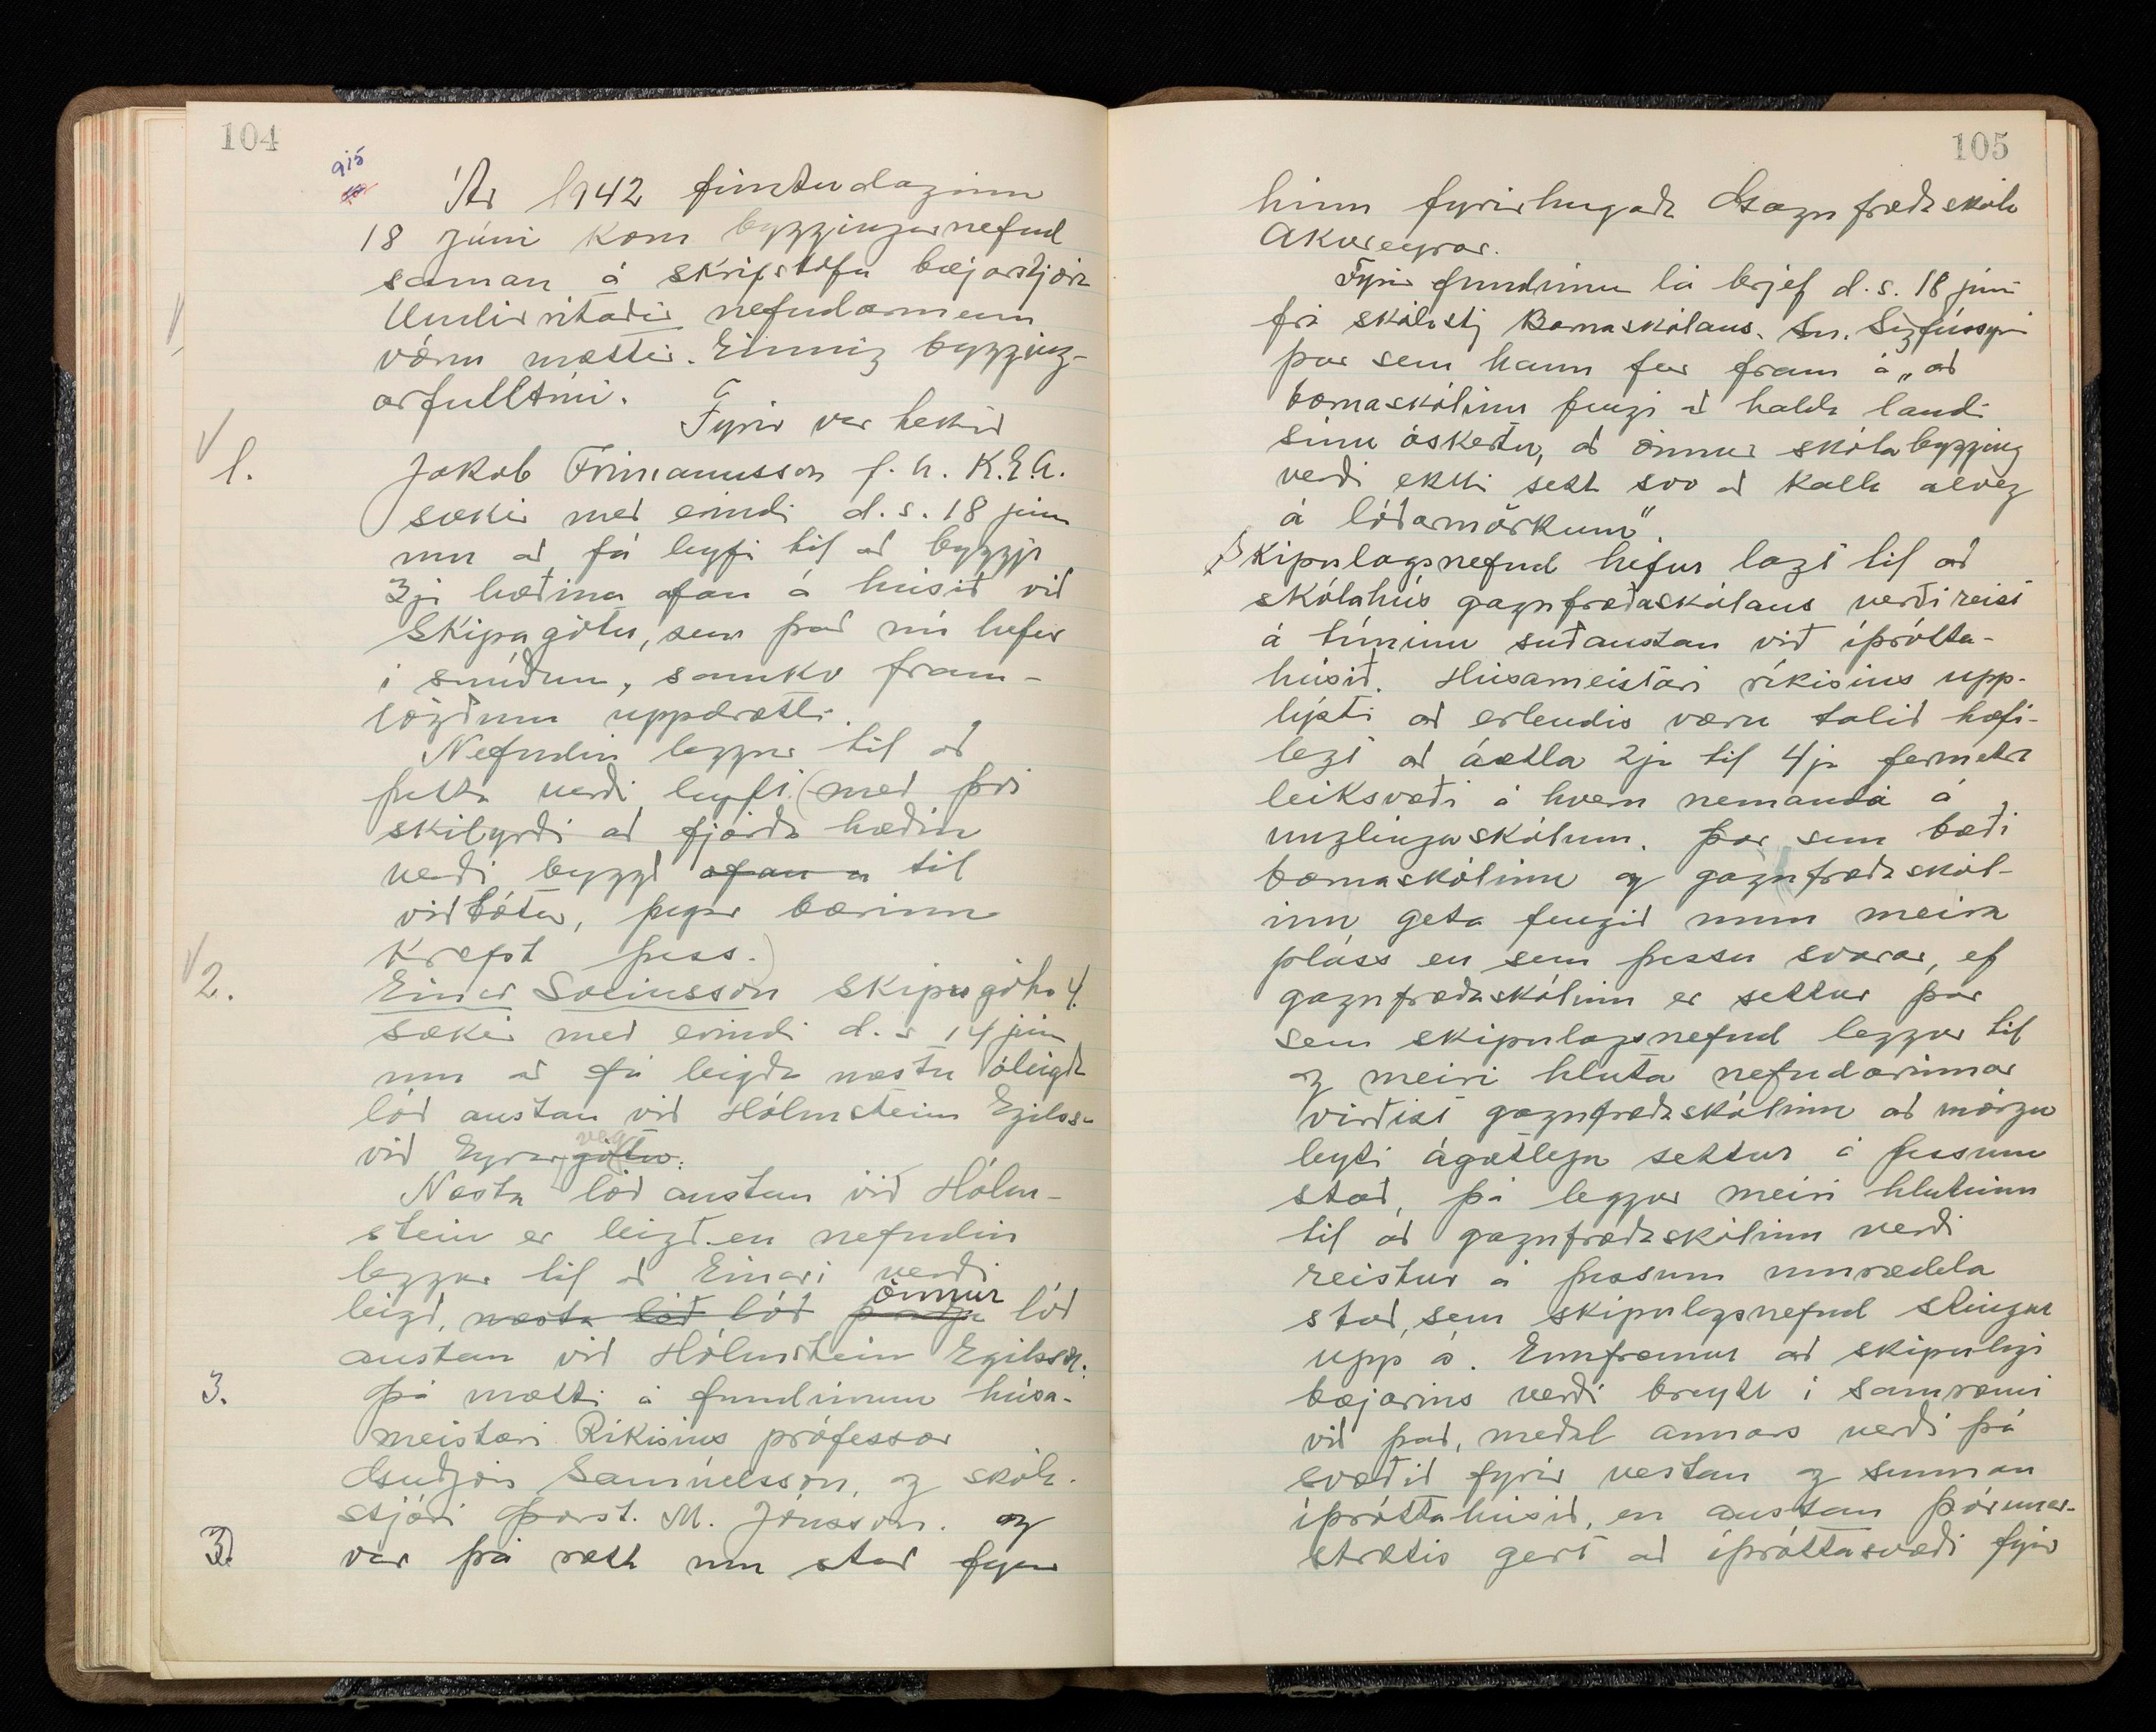 104
915
Ár 1942 fimtudaginn
18 júní kom byggingarnefnd
saman á skrifstofu bæjarstjóra
Undirritaðir nefndarmenn
vóru mættir. Einnig bygging-
arfulltrúi.
Fyrir var tekið
1.
Jakob Frimannsson f. h. K.E.A.
sækir með erindi d.s. 18 júní
um að fá leyfi til að byggja
3ju hæðina ofan á húsið við
Skipagötu, sem það nú hefir
í smíðum, samkv fram-
lögðum uppdrætti.
Nefndin leggur til að
þetta verði leyft (með því
skilyrði að fjórða hæðin
verði byggð ofan á til
viðbótar, þegar bærinn
krefst þess.)
2.
Einar Sveinsson Skipagötu 4.
sækir með erindi d.s 14 júní
um að fá leigða næstu óleigða
lóð austan við Hólmstein Egilss.
við Eyrar-götu. veg
Næsta lóð austan við Hólm-
stein er leigð en nefndin
leggur til að Einari verði
leigð, næsta lóð lóð önnur lóð
austan við Hólmstein Egilsson.
3.
Þá mætti á fundinum húsa-
meistari Ríkisins prófessor
Guðjón Samúelsson, og skóla-
stjóri Þorst. M. Jónsson. og
3)
var þá rætt um stað fyrir
105
hinn fyrirhugaða Gagnfræðaskóla
Akureyrar.
Fyrir fundinum lá brjef d.s. 18 júní
frá skólastj Barnaskólans. Sn. Sigfússyni
þar sem hann fer fram á „að
barnaskólinn fengi að halda landi
sínu óskertu, að önnur skólabygging
verði ekki sett svo að kalla alveg
á lóðamörkum".
Skipulagsnefnd hefur lagt til að
skólahús gagnfræðaskólans verði reist
á túninu suðaustan við íþrótta-
húsið. Húsameistari ríkisins upp-
lýsti að erlendis væru talið hæfi-
legt að áætla 2ja til 4ja fermetra
leiksvæði á hvern nemanda á
unglingaskólum. Þar sem bæði
barnaskólinn og gagnfræðaskól-
inn geta fengið mun meira
pláss en sem þessu svarar, ef
gagnfræðaskólinn er settur þar
sem skipulagsnefnd leggur til
og meiri hluta nefndarinnar
virðist gagnfræðaskólinn að mörgu
leyti ágætlega settur á þessum
stað, þá leggur meiri hlutinn
til að gagnfræðaskólinn verði
reistur á þessum umrædda
stað, sem skipulagsnefnd stingur
upp á. Ennfremur að skipulagi
bæjarins verði breytt í samræmi
við það, meðal annars verði þá
svæðið fyrir vestan og sunnan
íþróttahúsið, en austan Þórunnar-
strætis gert að íþróttasvæði fyrir